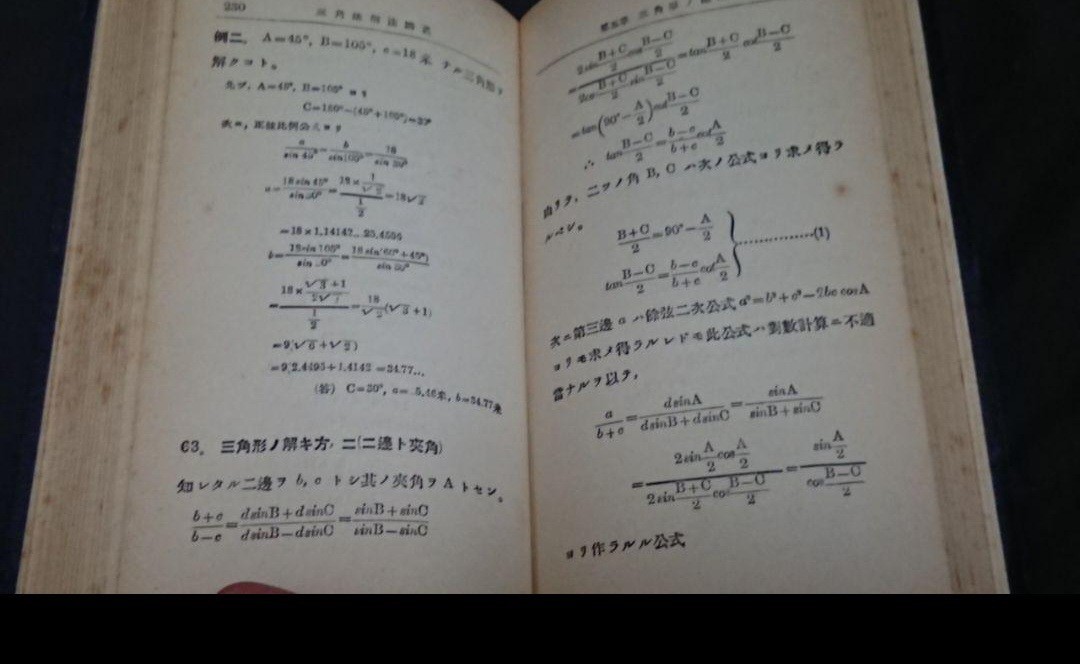 230
例二. A=45°, B=105°, c=18 米 ナル三角形ヲ
解クコト。
先ヅ, A=45°, B=105° ヨリ
C=180°−(45°+105°)=30°
次ニ, 正弦比例公式ヨリ
a/sin 45°=b/sin105°=18/sin 30°
a=18sin 45°/sin30°=(18×1/√2)/(1/2)=18√2
=18×1.4142...25.4556
b=18sin 105°/sin 30°=18 sin(60°+45°)/sin 30°
=(18×(√3+1)/2√2)/(1/2)=18/√2(√3+1)
=9(√6+√2)
=9(2.4495+1.4142)=34.77...
(答) C=30°, a=25.46米, b=34.77米
63. 三角形ノ解キ方, 二(二邊ト夾角)
知レタル二邊ヲ b, c トシ其ノ夾角ヲ A トセン。
b+c/b−c=dsinB+dsinC/dsinB−dsinC=sinB+sinC/sinB−sinC
第五章 三角形ノ
=2sin B+C/2 cos B−C/2 / 2cos B+C/2 sin B−C/2=tan B+C/2 cot B−C/2
=tan(90°−A/2)cot B−C/2
∴ tan B−C/2=b−c/b+c cot A/2
由リテ, 二ツノ角 B, C ハ次ノ公式ヨリ求メ得ラ
ルベシ。
B+C/2=90°−A/2
tan B−C/2=b−c/b+c cot A/2 } ...............(1)
次ニ第三邊 a ハ餘弦二次公式 a²=b²+c²−2bc cosA
ヨリモ求メ得ラルレドモ此公式ハ對數計算ニ不適
當ナルヲ以テ,
a/b+c=dsinA/dsinB+dsinC=sinA/sinB+sinC
=2sin A/2 cos A/2 / 2sin B+C/2 cos B−C/2=sin A/2 / cos B−C/2
ヨリ作ラルル公式